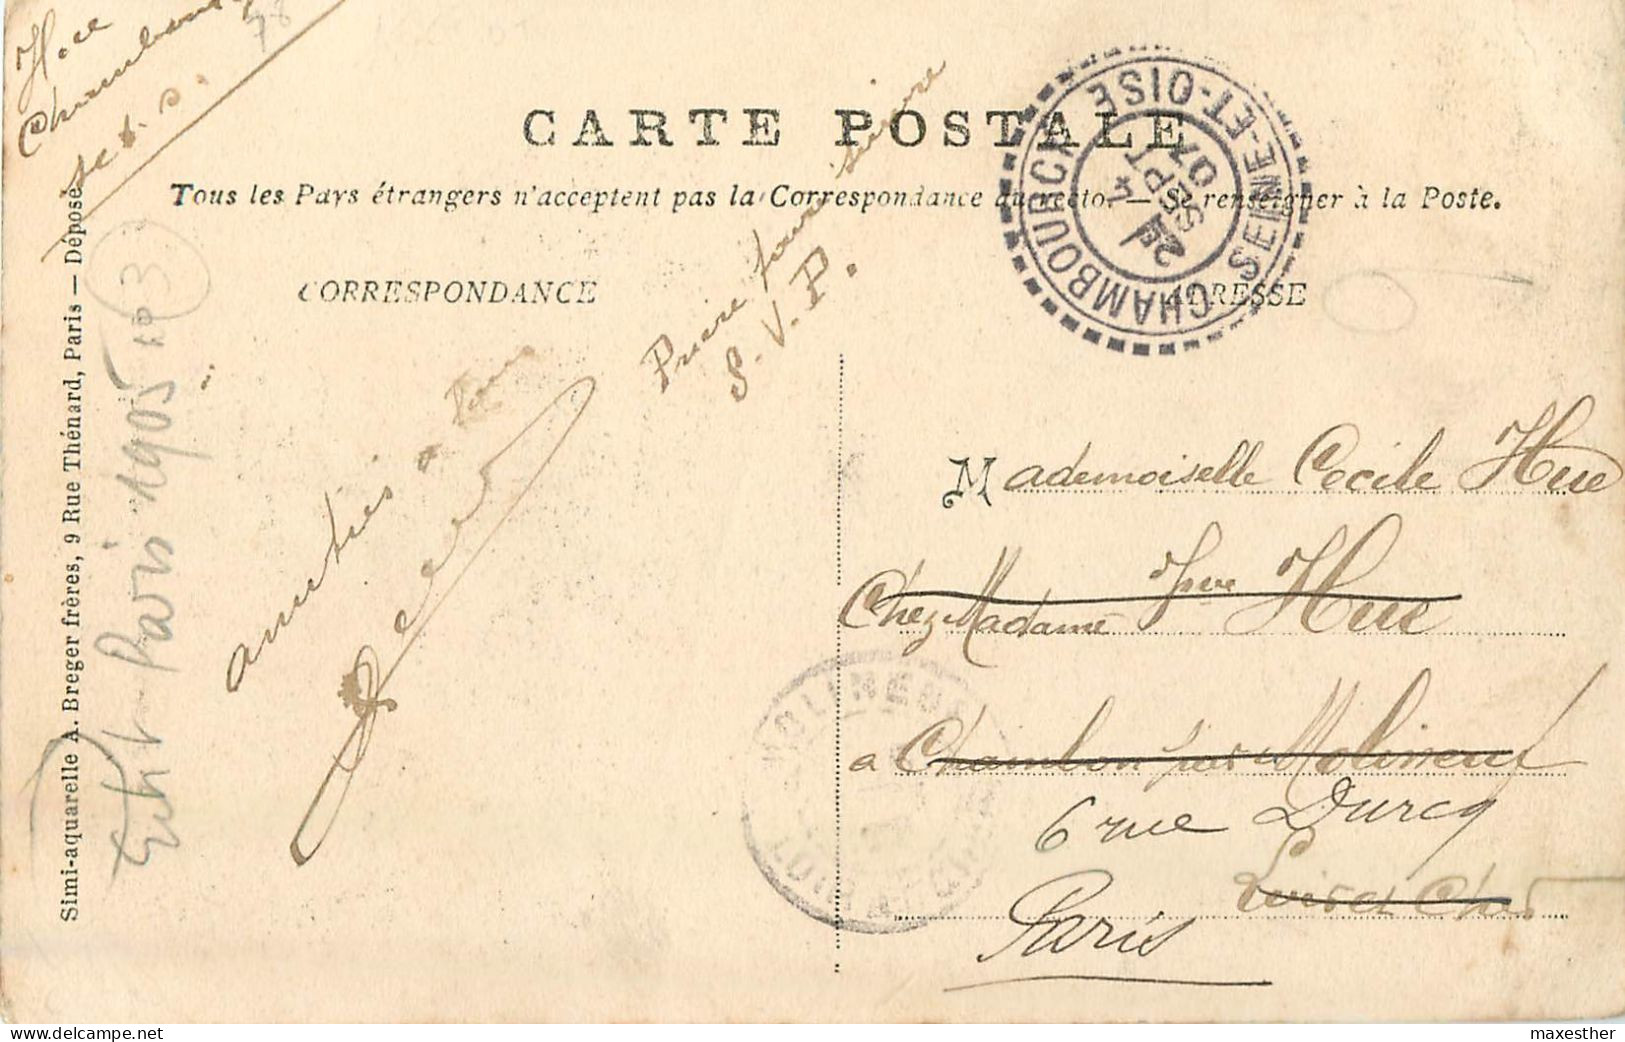 CARTE POSTALE
Tous les Pays étrangers n'acceptent pas la Correspondance au recto. — Se renseigner à la Poste.
CORRESPONDANCE
ADRESSE
CHAMBOURCY SEINE-ET-OISE
4 SEPT 07
Prière faire suivre
S. V. P.
amitiés à tous
Mademoiselle Cecile Hue
Chez Madame Vve Hue
a Chambon par Molineuf
6 rue Durcq
Loir et Cher
Paris
MOLINEUF
LOIR-ET-CHER
Simi-aquarelle A. Breger frères, 9 Rue Thénard, Paris — Déposé
Paris 1905
3
78
maxesther